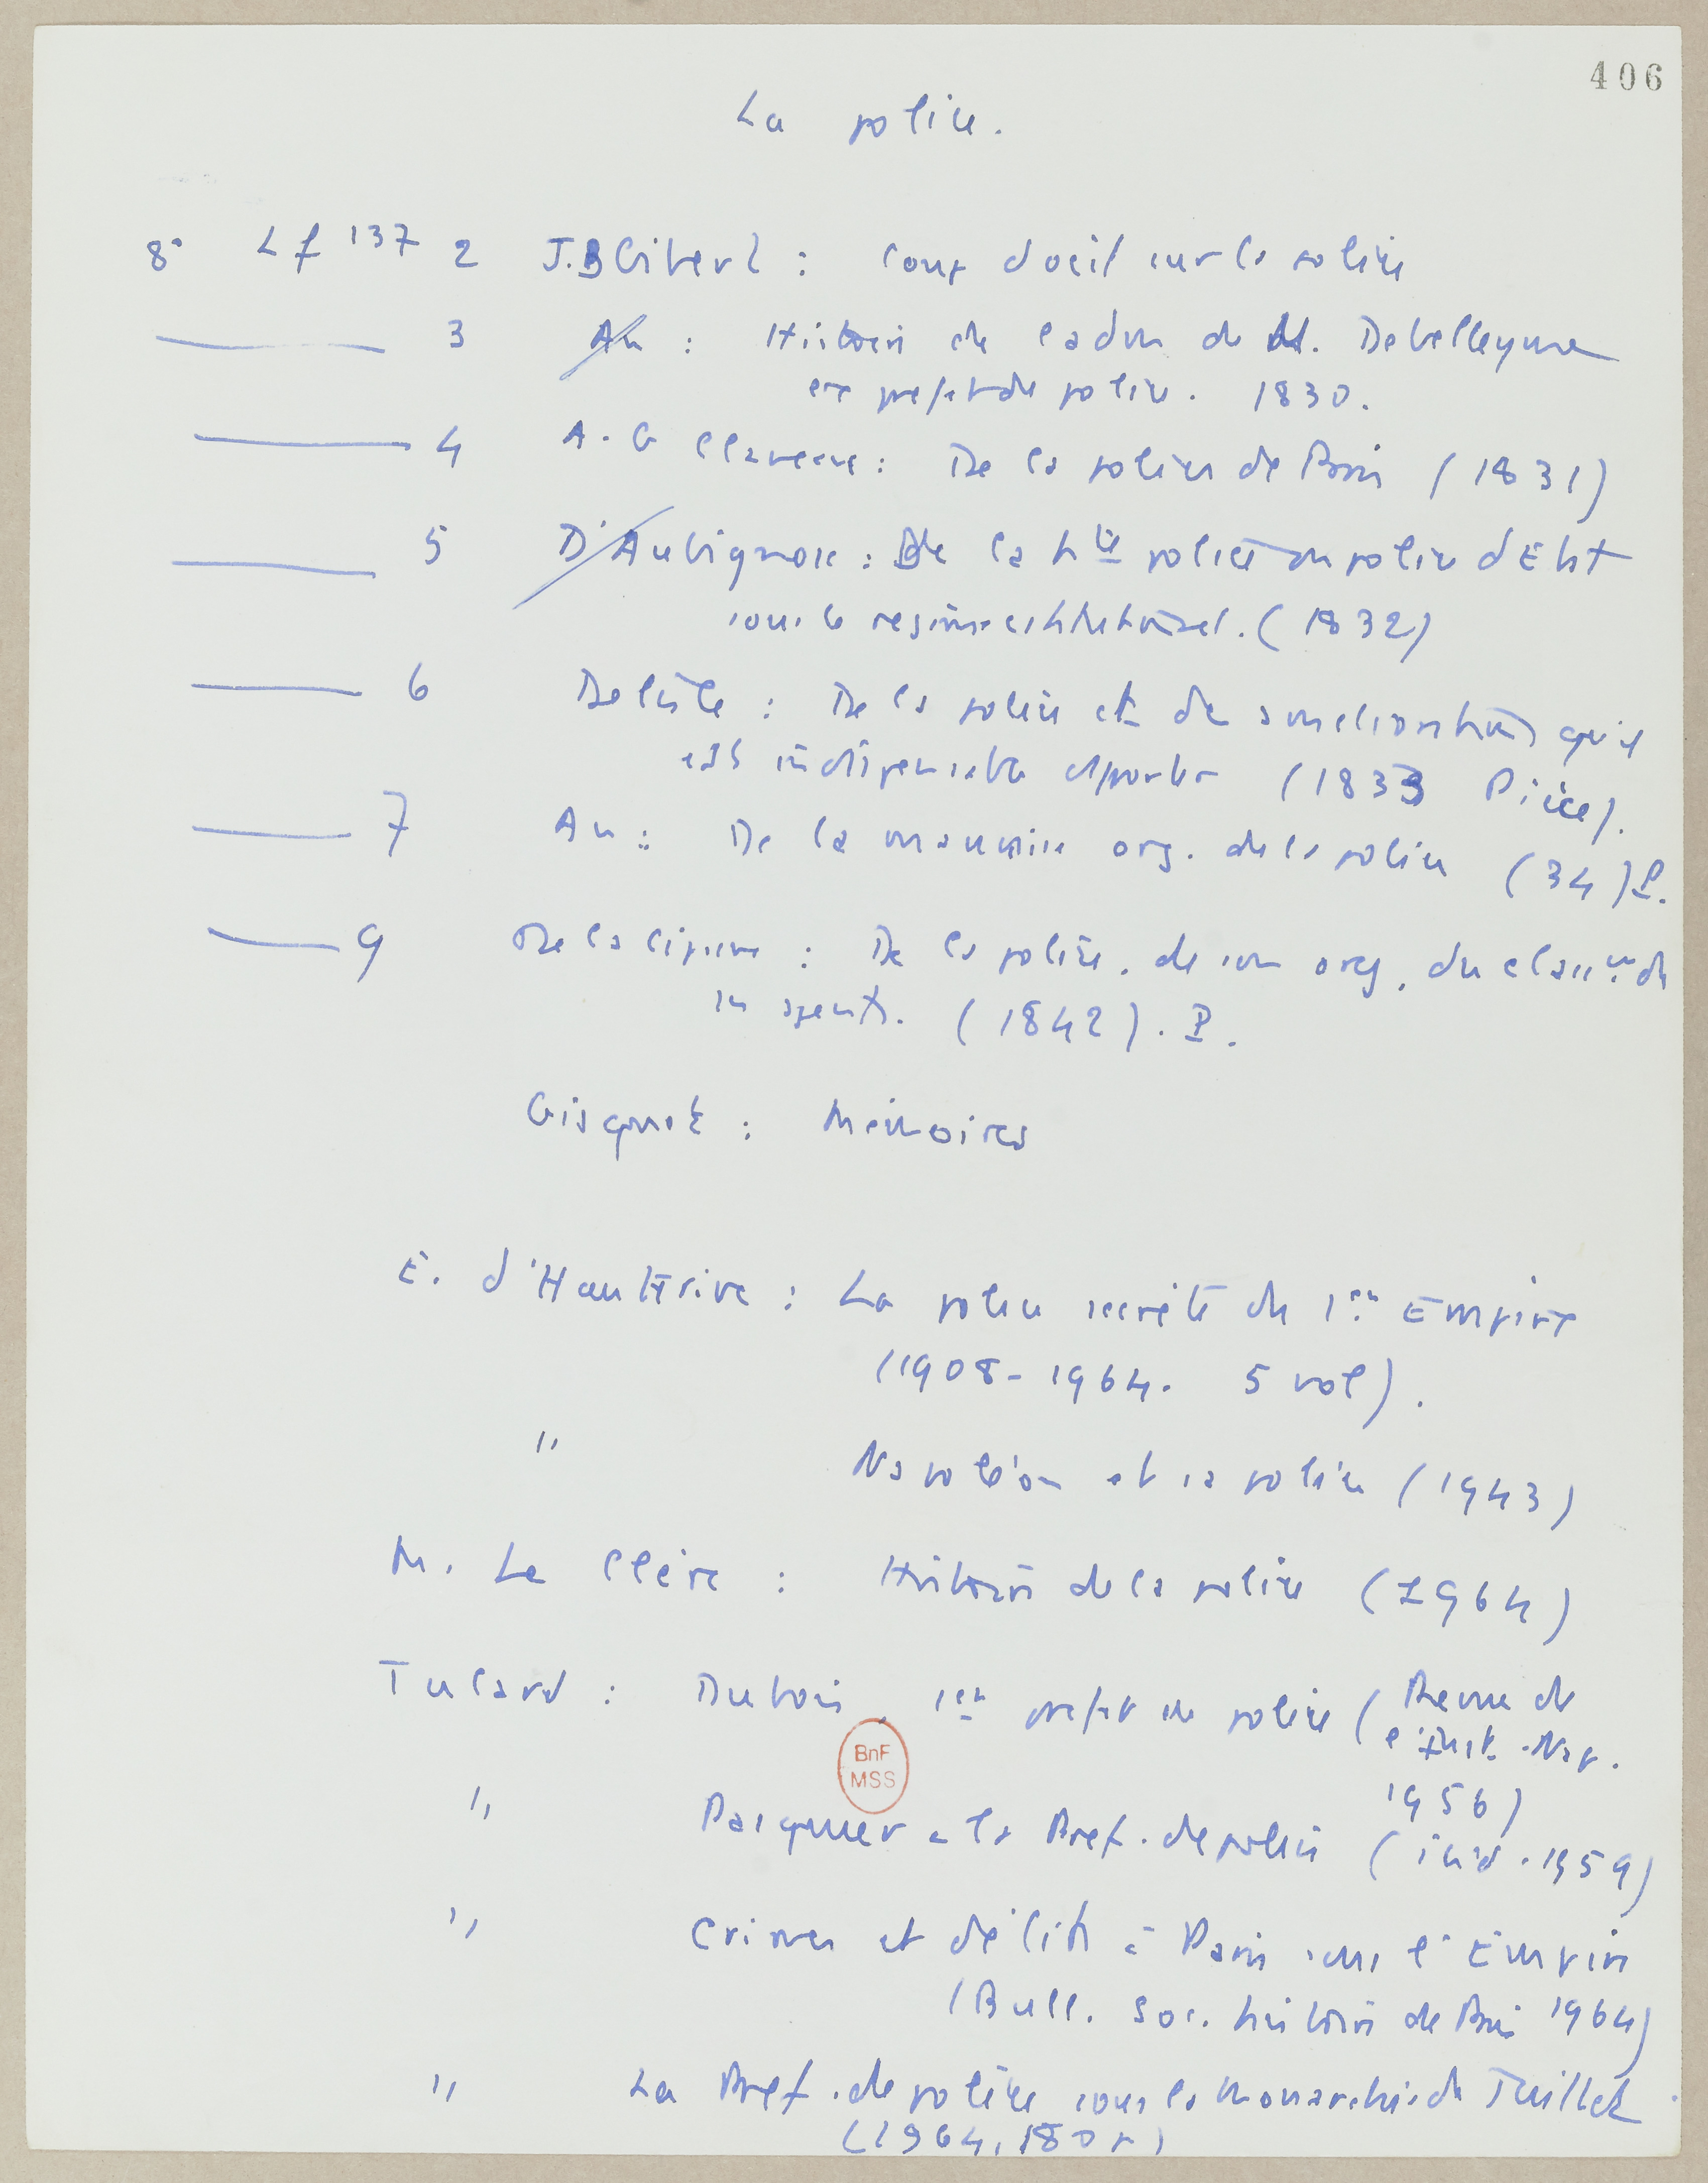 406
La police.
8° Lf 137 2 J.B Gibert : Coup d'oeil sur la police
3 An : Histoire de l'adm de M. Debelleyme
ex prefet de police. 1830.
4 A. G Claveau : De la police de Paris (1831)
5 D'Aubignosc : De la hte police ou police d'Etat
sous le regime constitutionnel. (1832)
6 : De la police et des ameliorations qu'il
est indispensable d'y apporter (1833 Pièce).
7 An : De la mauvaise org. de la police (34) P.
9 : De la police, de son org, du
ses agents. (1842). P.
Gisquet : Mémoires
E. d'Hauterive : La police secrète du 1er Empire
(1908-1964. 5 vol).
" Napoléon et sa police (1943)
M. Le Clère : Histoire de la police (1964)
Tulard : Dubois, 1er prefet de police (Revue de
l'Inst. Nap.
1956)
" Pasquier à la Pref. de police (ibid. 1959)
" Crimes et délits à Paris sous l'Empire
(Bull. Soc. histoire de Paris 1964)
" La Pref. de police sous la monarchie de Juillet.
(1964, 180 p)
BnF
MSS